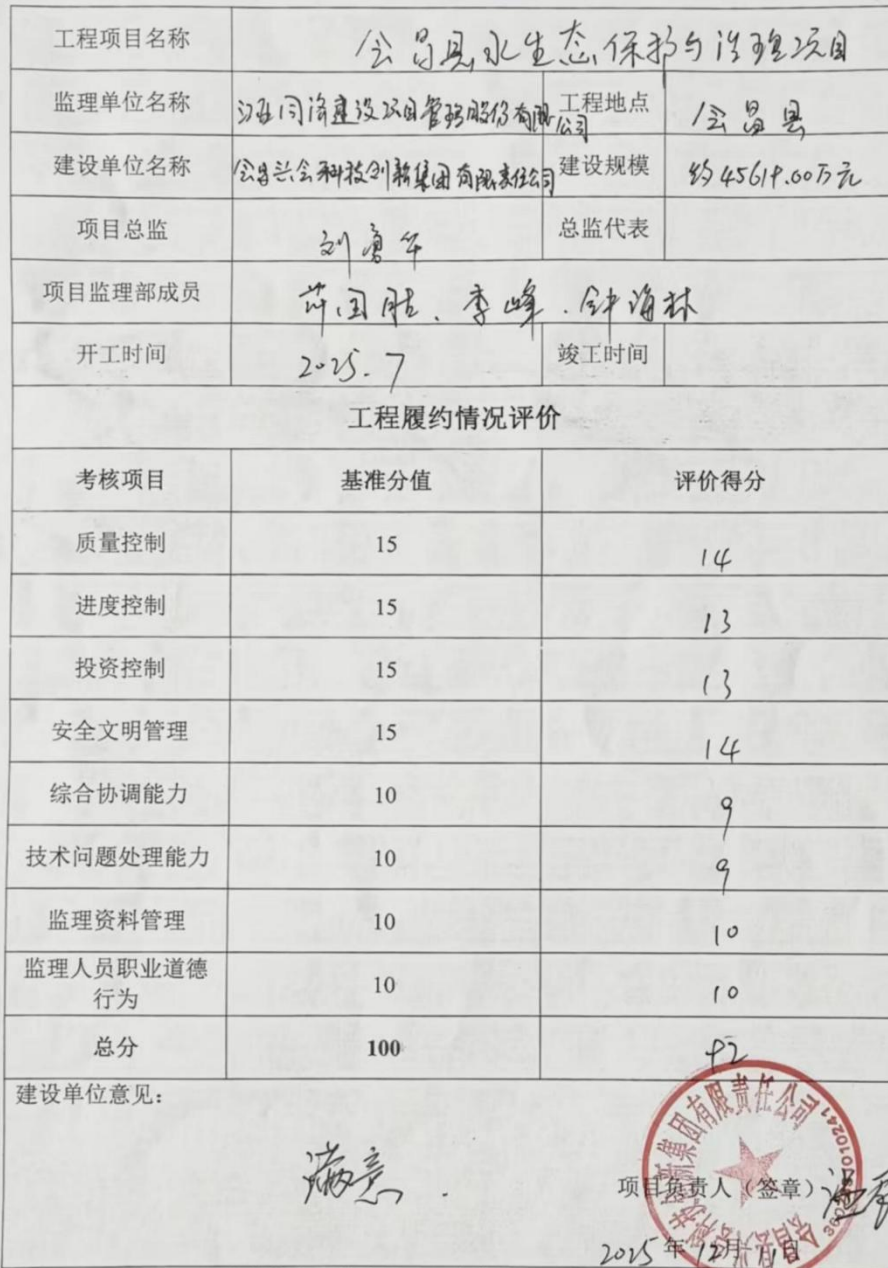 工程项目名称 会昌县水生态保护与治理项目
监理单位名称 江西同济建设项目管理股份有限公司 工程地点 会昌县
建设单位名称 会昌兴会科技创新集团有限责任公司 建设规模 约45619.00万元
项目总监 刘勇年 总监代表
项目监理部成员 李峰、钟海林
开工时间 2025.7 竣工时间
工程履约情况评价
考核项目 基准分值 评价得分
质量控制 15 14
进度控制 15 13
投资控制 15 13
安全文明管理 15 14
综合协调能力 10 9
技术问题处理能力 10 9
监理资料管理 10 10
监理人员职业道德
行为 10 10
总分 100 92
建设单位意见：
满意.
项目负责人（签章）
2025年12月11日